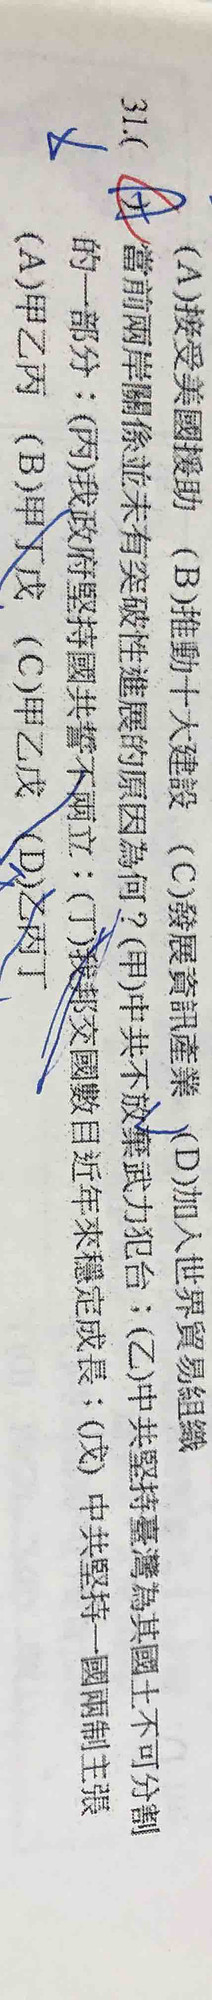 (A)接受美國援助 (B)推動十大建設 (C)發展資訊產業 (D)加入世界貿易組織
31.( )當前兩岸關係並未有突破性進展的原因為何？(甲)中共不放棄武力犯台；(乙)中共堅持臺灣為其國土不可分割
的一部分；(丙)我政府堅持國共誓不兩立；(丁)我邦交國數目近年來穩定成長；(戊) 中共堅持一國兩制主張
(A)甲乙丙 (B)甲丁戊 (C)甲乙戊 (D)乙丙丁